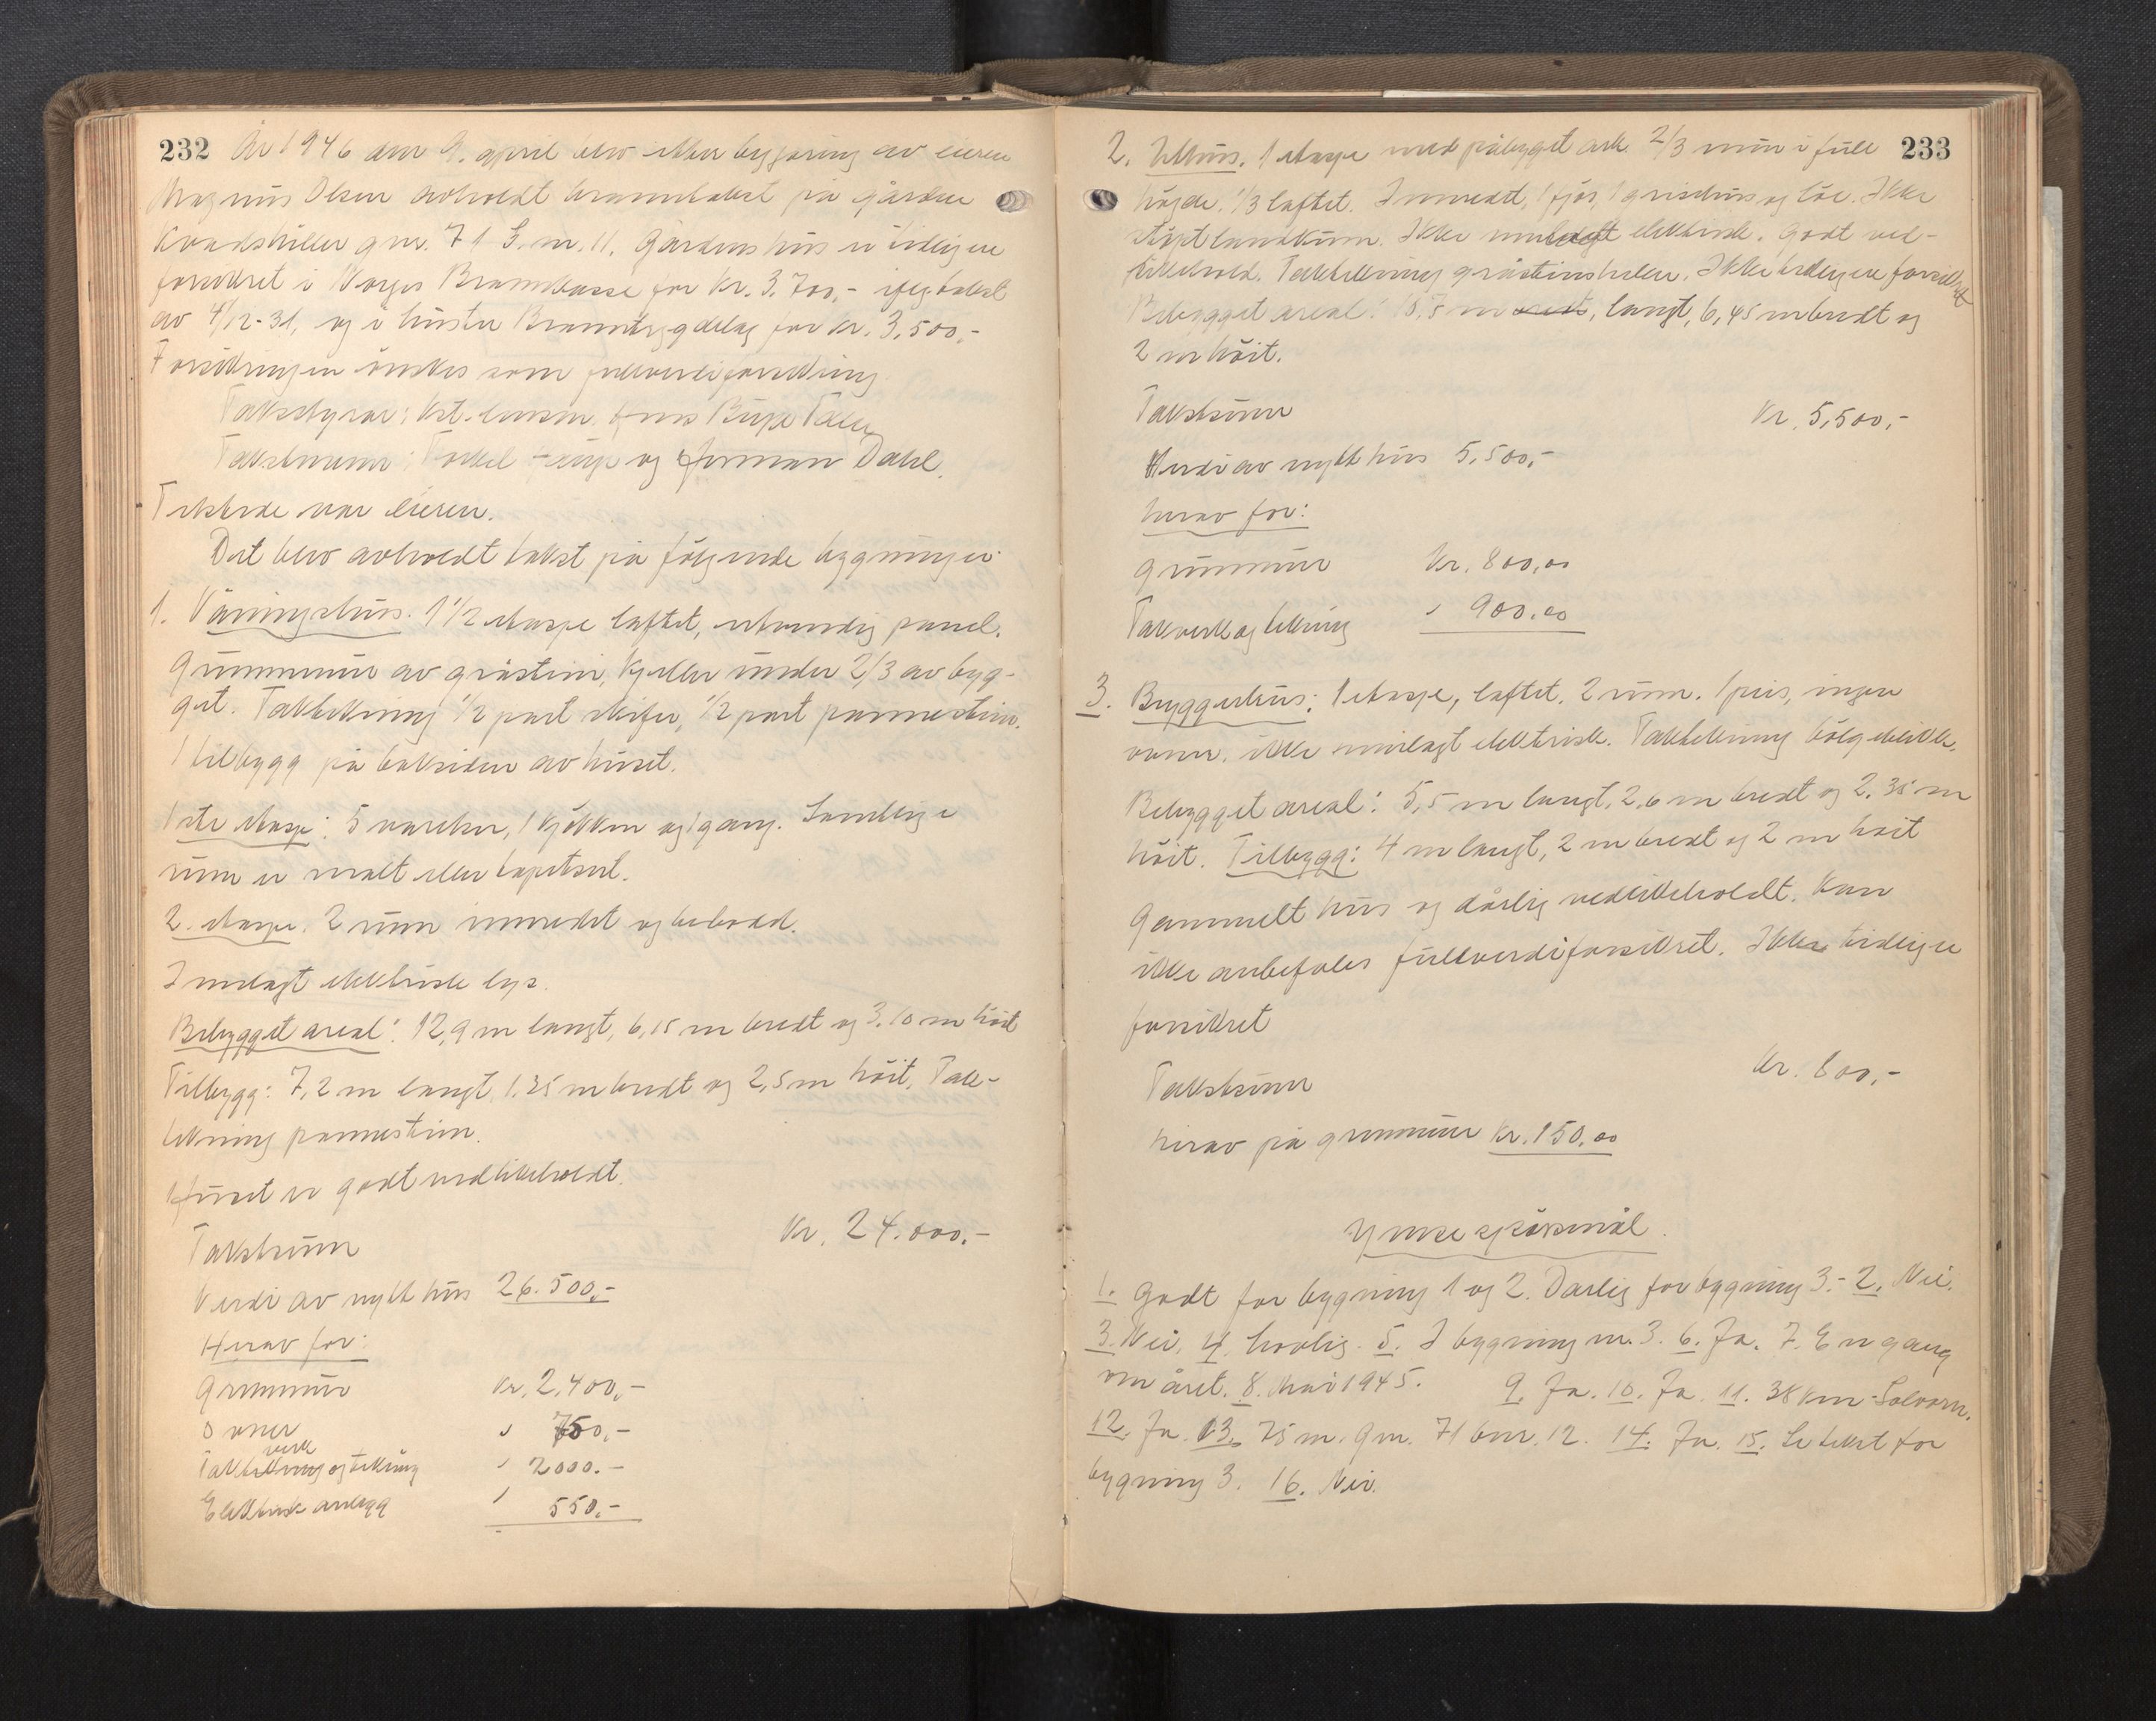 232
År 1946 den 9. april blev etter begjæring av eieren
Magnus Olsen avholdt branntakst på gården
Kvadshiller gnr. 71 b.nr. 11. Gårdens hus er tidligere
forsikret i Norges Brannkasse for kr. 3.700,- ifølge takst
av 4/12-31, og i Luster Branntrygdelag for kr. 3,500,-
Forsikringen ønskes som fullverdiforsikring.
Takstbestyrer: kst. lensm. Jens
Takstmenn: og Herman Dahl.
Tilstede var eieren.
Det blev avholdt takst på følgende bygninger:
1. Våningshus. 1 1/2 etasje laftet, utvendig panel.
Grunnmur av gråstein, kjeller under 2/3 av byg-
get. Taktekning 1/2 part skifer, 1/2 part pannestein.
1 tilbygg på baksiden av huset.
1ste etasje: 5 værelser, 1 kjøkken og 1 gang. Samtlige
rum er malt eller tapetsert.
2. etasje. 2 rum innredet og bebodd.
Innlagt elektrisk lys.
Bebygget areal: 12,9 m langt, 6,15 m bredt og 3.10 m høit
Tilbygg: 7,2 m langt, 1.35 m bredt og 2,5 m høit, Tak-
tekning pannestein.
Huset er godt vedlikeholdt.
Takstsum Kr. 24.000.-
Verdi av nytt hus 26.500,-
Herav for:
Grunnmur kr. 2,400,-
Ovner " 750,-
verk
Taktekning og tekning " 2000.-
Elektrisk anlegg " 550.-
233
2. Uthus. 1 etasje med påbygget ark. 2/3 mur i full
høgde. 1/3 laftet. Innredt, 1 fjøs, 1 grisehus og løe. Ikke
støpt landkum. Ikke innlagt elektrisk. Godt ved-
likehold. Taktekning gråsteinsheller. Ikke tidligere forsikret
Bebygget areal: 15,5 m bredt, langt, 6,45 m bredt og
2 m høit.
Takstsum Kr. 5,500,-
Verdi av nytt hus 5.500,-
herav for:
Grunnmur Kr. 800,00
Takverk og tekning " 900.00
3. Bryggerhus: 1 etasje, laftet. 2 rum. 1 peis, ingen
ovner, ikke innlagt elektrisk. Taktekning bølgeblikk.
Bebygget areal: 5,5 m langt, 2,6 m bredt og 2.35 m
høit. Tilbygg: 4 m langt, 2 m bredt og 2 m høit
Gammelt hus og dårlig vedlikeholdt. Kan
ikke anbefales fullverdiforsikret. Ikke tidligere
forsikret
Takstsum Kr. 800,-
herav på grunnmur kr. 150.00
Ymse spørsmål.
1. Godt for bygning 1 og 2. Dårlig for bygning 3.- 2. Nei.
3. Nei. 4. lovlig. 5. I bygning nr. 3. 6. Ja. 7. En gang
om året. 8. Mai 1945. 9. Ja. 10. Ja. 11. 38 km - Solvorn.
12. Ja. 13. 75 m. gnr. 71 bnr. 12. 14. Ja. 15. Se takst for
bygning 3. 16. Nei.